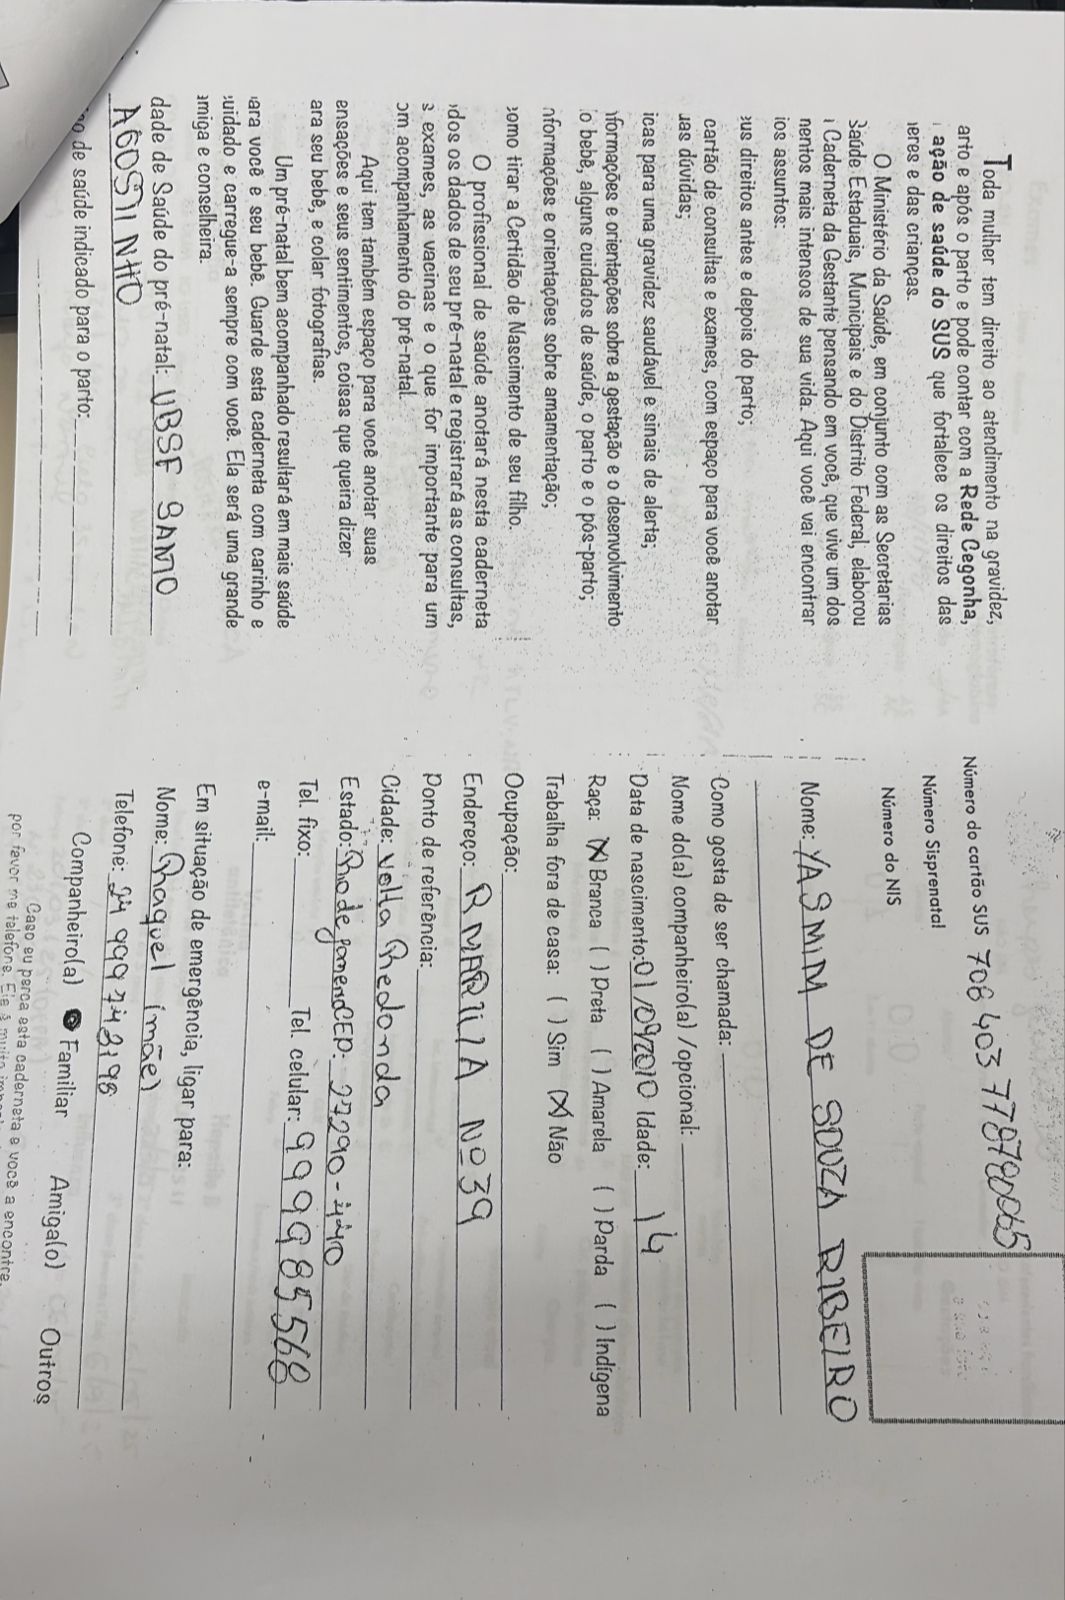 Toda mulher tem direito ao atendimento na gravidez,
arto e após o parto e pode contar com a Rede Cegonha,
ação de saúde do SUS que fortalece os direitos das
eres e das crianças.
O Ministério da Saúde, em conjunto com as Secretarias
Saúde Estaduais, Municipais e do Distrito Federal, elaborou
Caderneta da Gestante pensando em você, que vive um dos
mentos mais intensos de sua vida. Aqui você vai encontrar
ios assuntos:
us direitos antes e depois do parto;
cartão de consultas e exames, com espaço para você anotar
uas dúvidas;
icas para uma gravidez saudável e sinais de alerta;
nformações e orientações sobre a gestação e o desenvolvimento
o bebê, alguns cuidados de saúde, o parto e o pós-parto;
nformações e orientações sobre amamentação;
omo tirar a Certidão de Nascimento de seu filho.
O profissional de saúde anotará nesta caderneta
dos os dados de seu pré-natal e registrará as consultas,
s exames, as vacinas e o que for importante para um
om acompanhamento do pré-natal.
Aqui tem também espaço para você anotar suas
ensações e seus sentimentos, coisas que queira dizer
ara seu bebê, e colar fotografias.
Um pré-natal bem acompanhado resultará em mais saúde
ara você e seu bebê. Guarde esta caderneta com carinho e
uidado e carregue-a sempre com você. Ela será uma grande
amiga e conselheira.
dade de Saúde do pré-natal: UBSF SANTO
AGOSTINHO
o de saúde indicado para o parto:
Número do cartão SUS 708 403 7787
Número Sisprenatal
Número do NIS
Nome: YASMIM DE SOUZA RIBEIRO
Como gosta de ser chamada:
Nome do(a) companheiro(a) /opcional:
Data de nascimento: 01/09/2010 Idade: 14
Raça: (X) Branca ( ) Preta ( ) Amarela ( ) Parda ( ) Indígena
Trabalha fora de casa: ( ) Sim (X) Não
Ocupação:
Endereço: R MARILIA Nº 39
Ponto de referência:
Cidade: Volta Redonda
Estado: Rio de CEP: 27290-440
Tel. fixo: Tel. celular: 999985568
e-mail:
Em situação de emergência, ligar para:
Nome: Rhaquel (mãe)
Telefone: 24 99974
Companheiro(a) Familiar Amiga(o) Outros
Caso eu perca esta caderneta e você a encontre,
por favor me telefone. Ela é muito